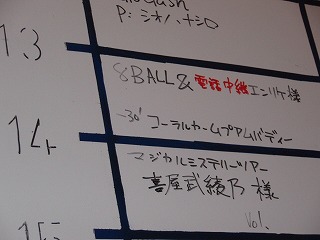 P: シオハナシロ
13
8BALL & 電話中継エンリケ様
-30' コーラルカームプアムバディー
14
マジカルミステリーツアー
喜屋武績乃 様
Vol.